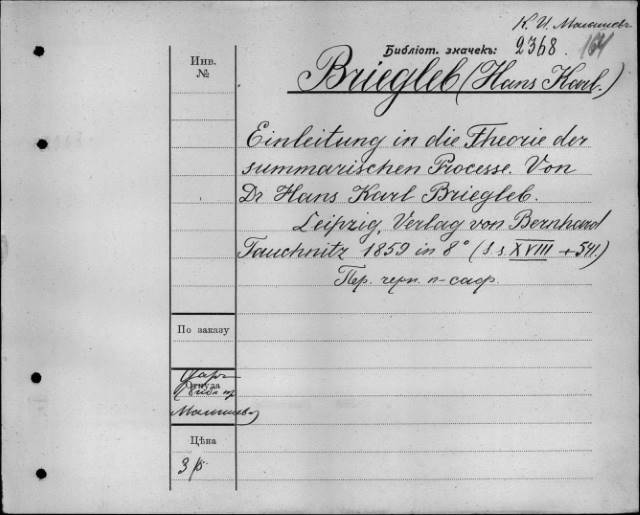 К. И. Малышевъ
Библіот. значекъ: 2368. 164
Инв. №
Briegleb (Hans Karl.)
Einleitung in die Theorie der
summarischen Processe. Von
Dr Hans Karl Briegleb.
Leipzig, Verlag von Bernhard
Tauchnitz 1859 in 8° (S.s. XVIII + 541.)
Пер. черн. п-саф.
По заказу
Даръ
Откуда
Малышева
Цѣна
3 р